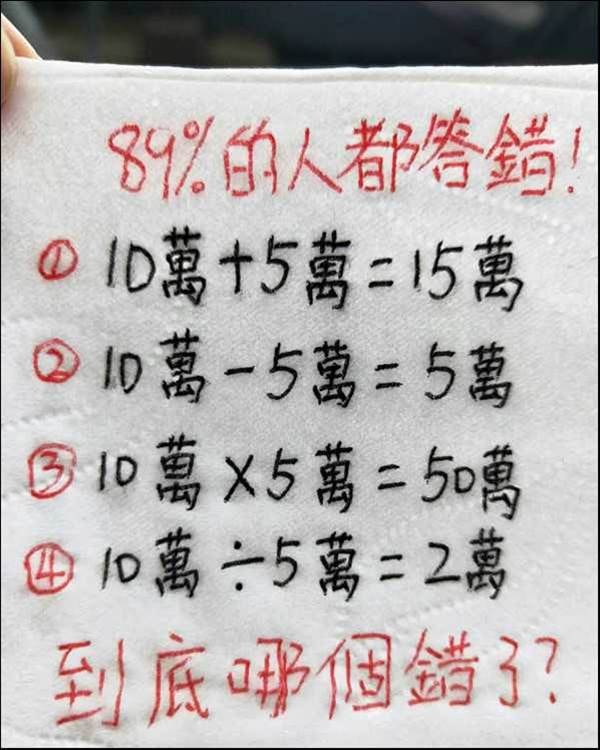 89%的人都答錯!
① 10萬+5萬=15萬
② 10萬-5萬=5萬
③ 10萬×5萬=50萬
④ 10萬÷5萬=2萬
到底哪個錯了?